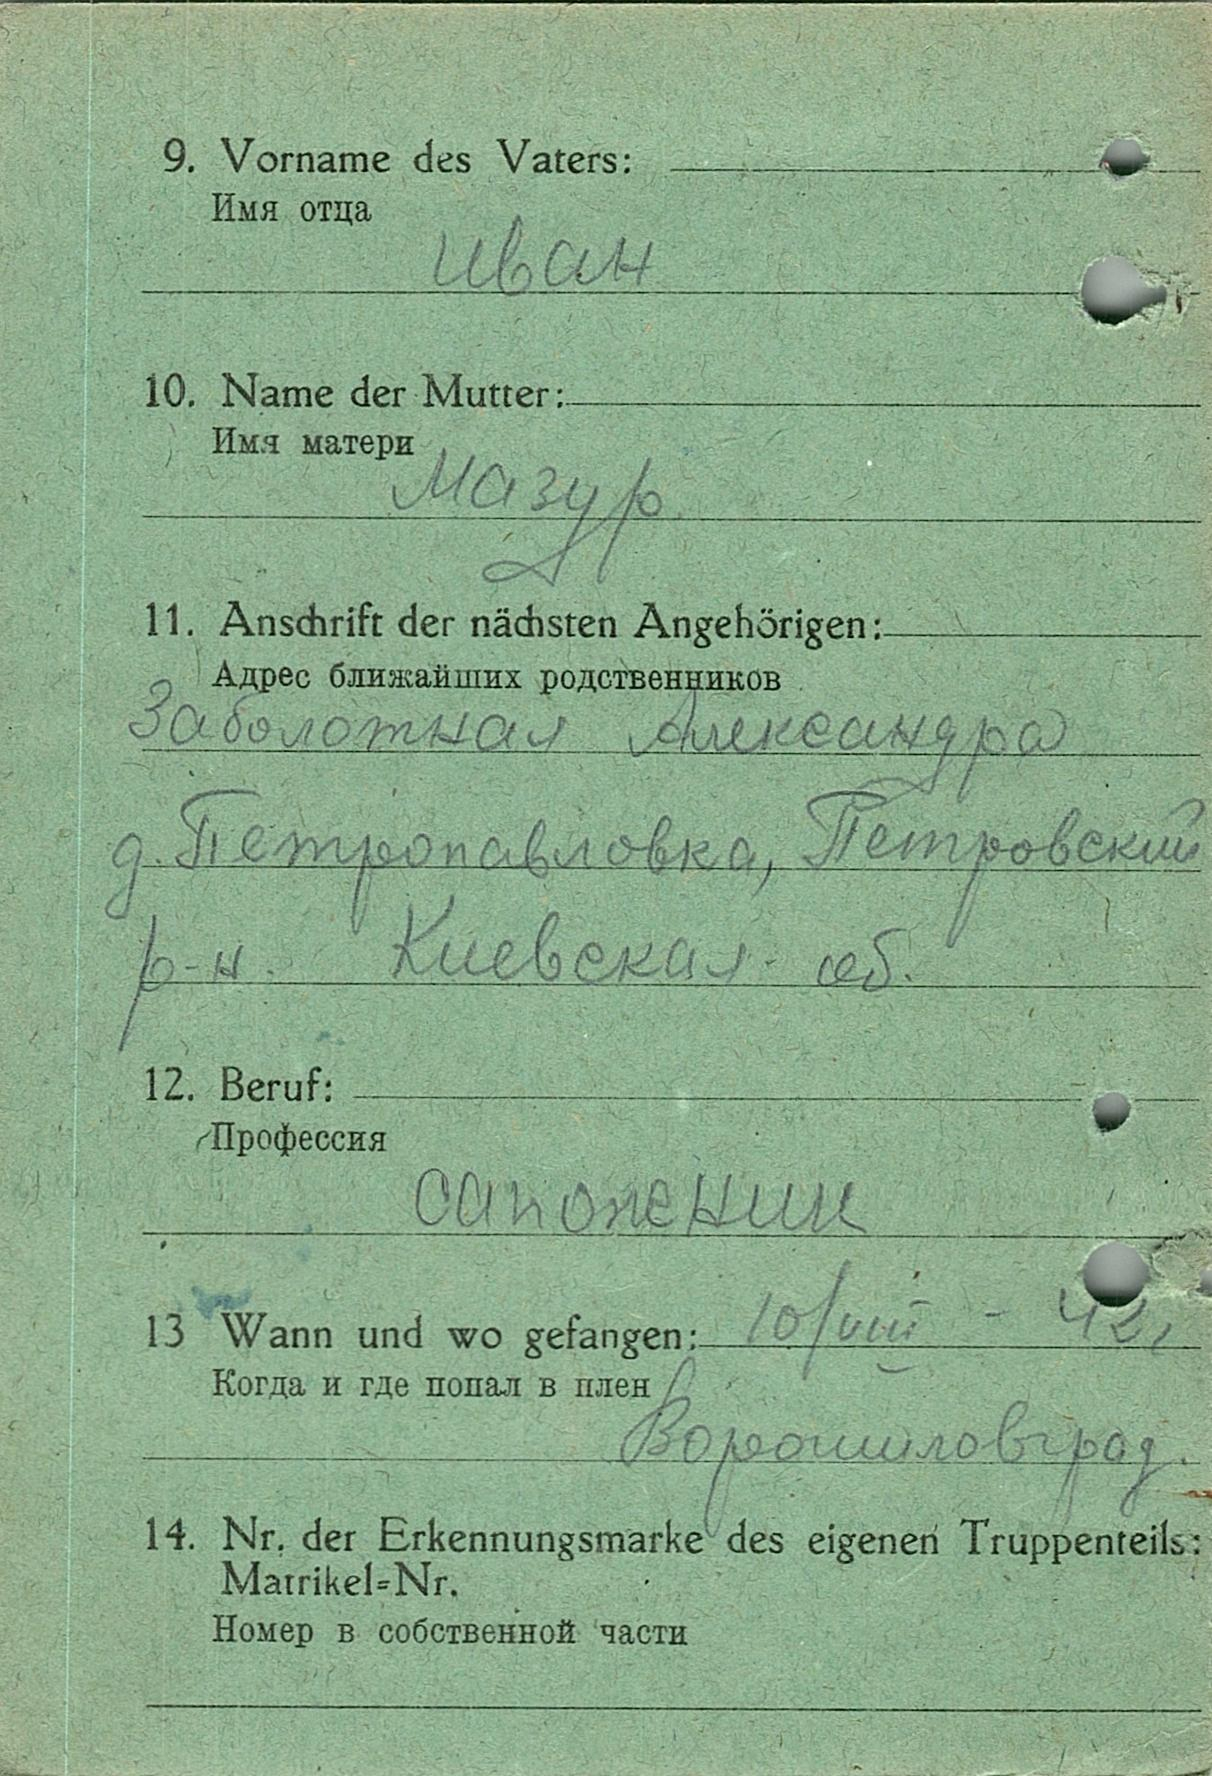 9. Vorname des Vaters:
Имя отца
Иван
10. Name der Mutter:
Имя матери
Мазур
11. Anschrift der nächsten Angehörigen:
Адрес ближайших родственников
Заболотная Александра
д. Петропавловка, Петровский
р-н. Киевская об.
12. Beruf:
Профессия
сапожник
13 Wann und wo gefangen: 10/VIII - 42,
Когда и где попал в плен
Ворошиловград.
14. Nr. der Erkennungsmarke des eigenen Truppenteils:
Matrikel=Nr.
Номер в собственной части